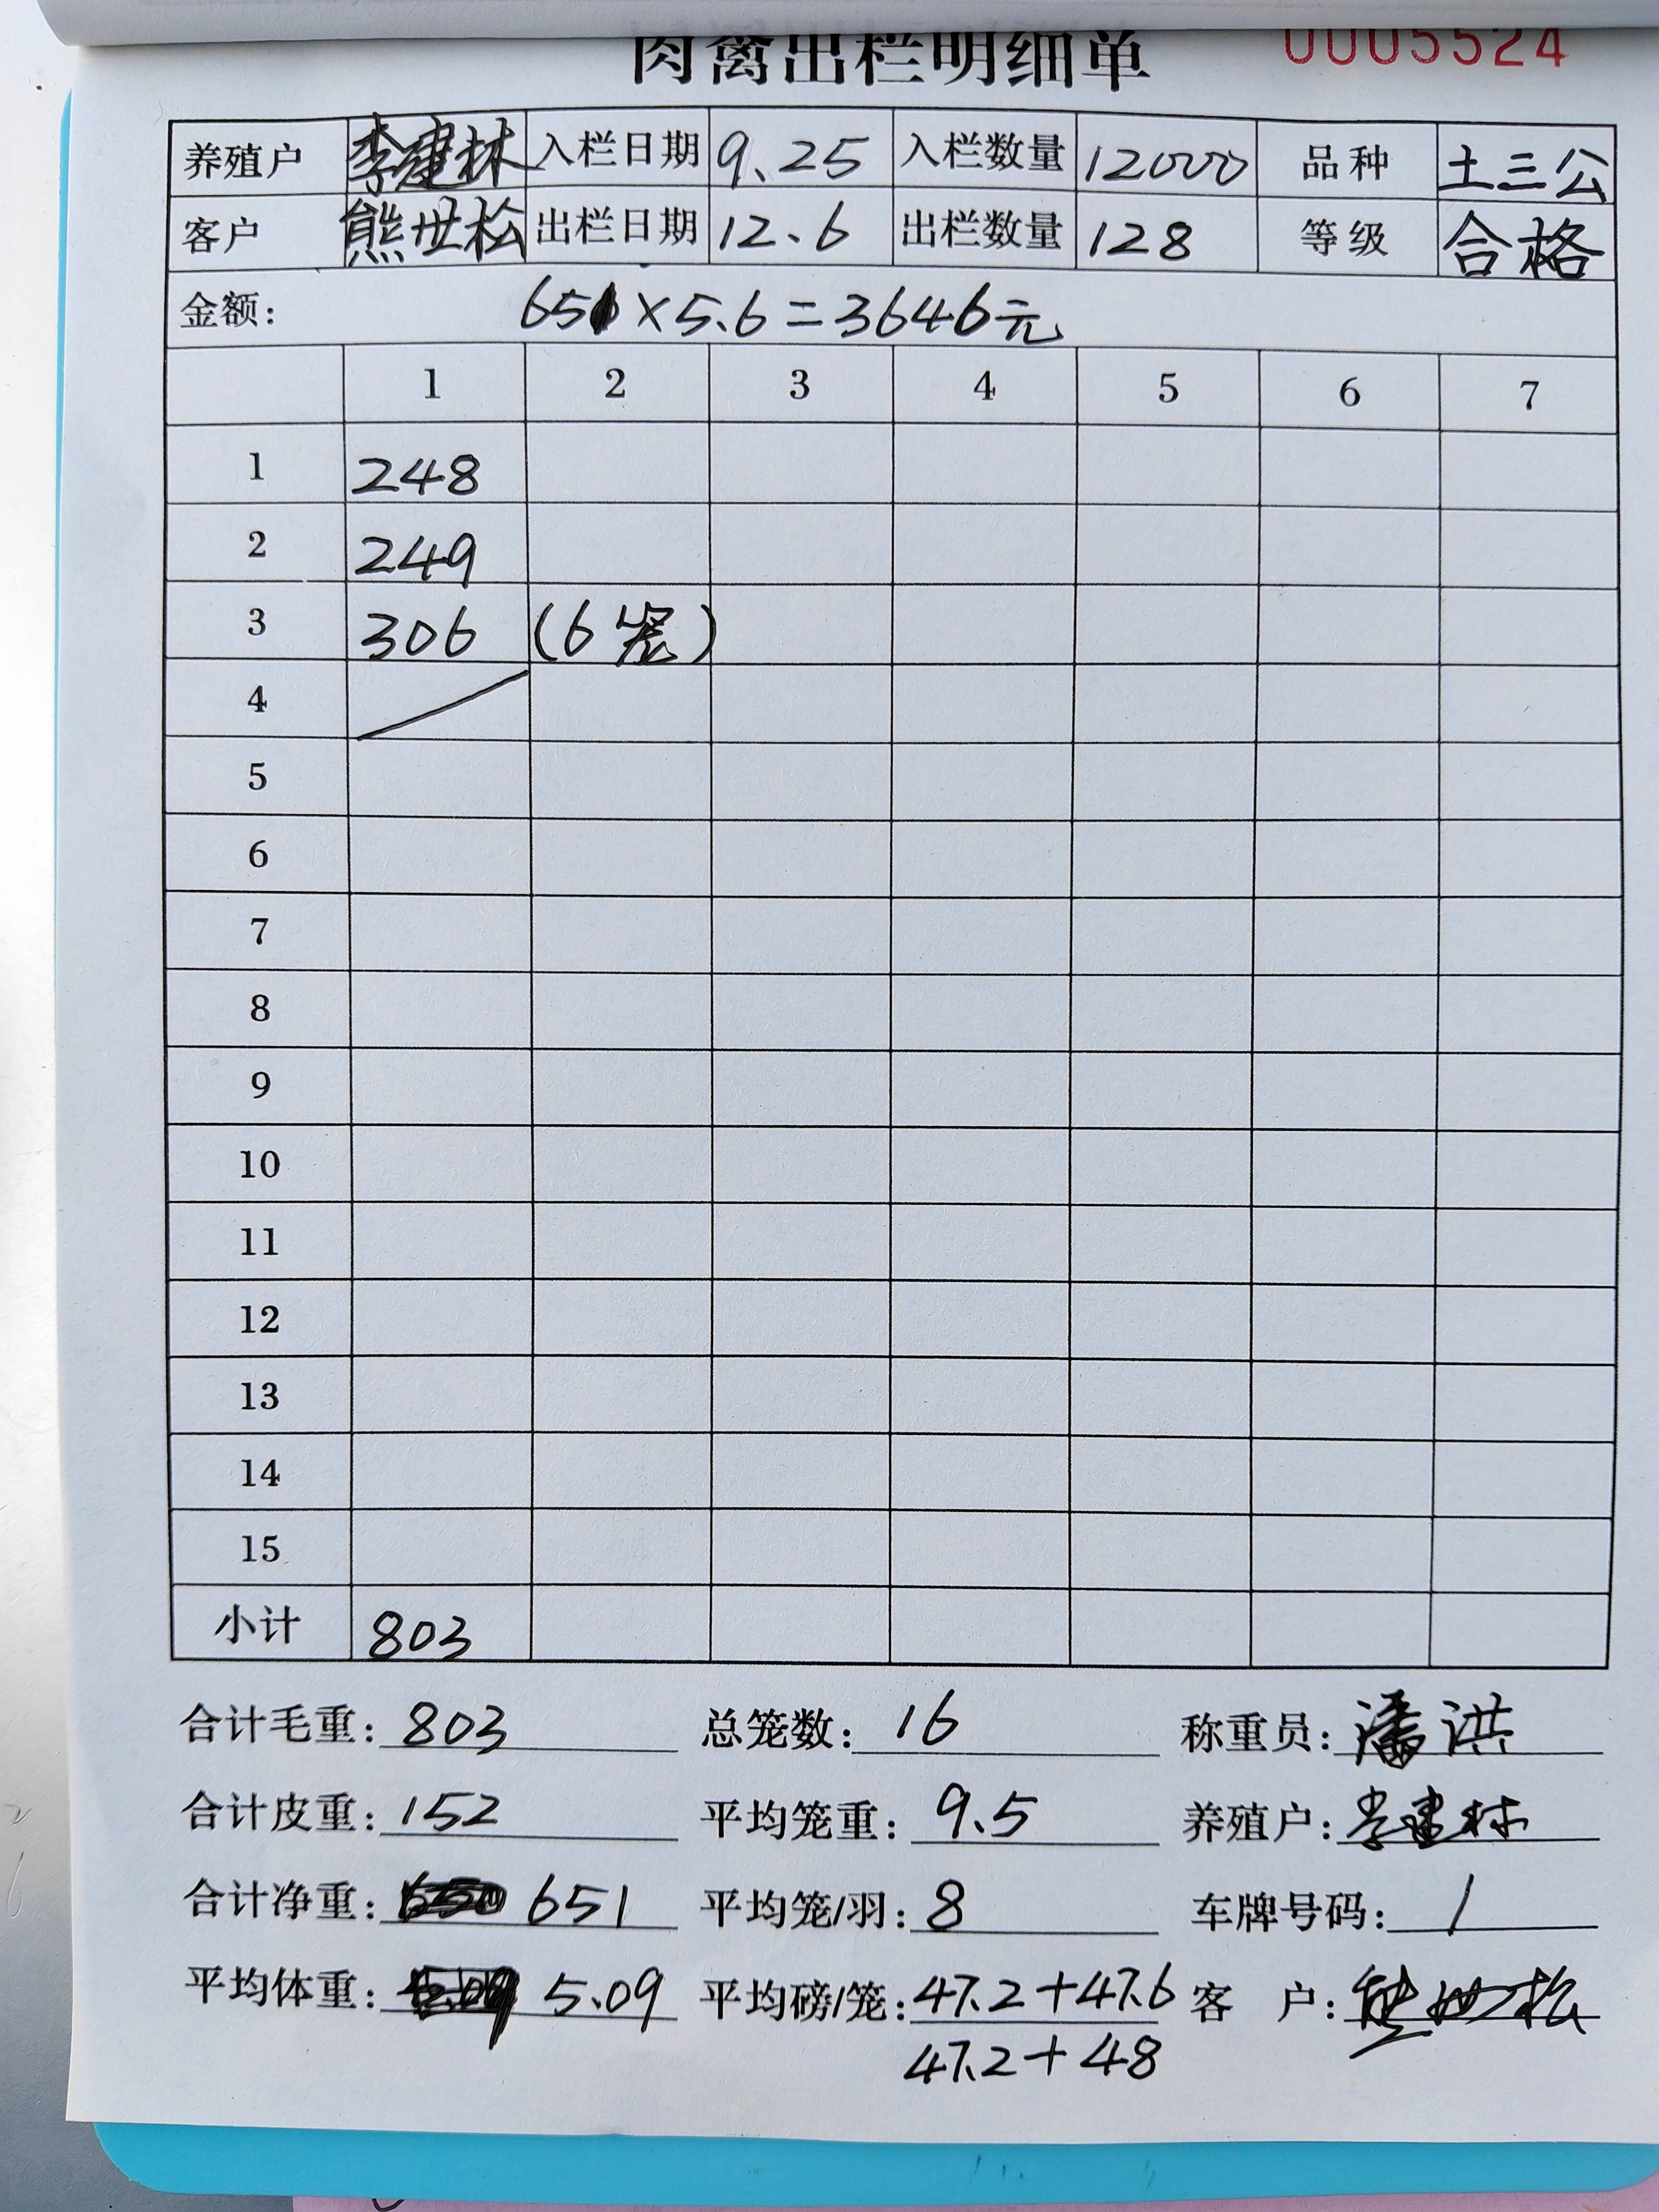 肉禽出栏明细单 0005524
养殖户 李建林 入栏日期 9.25 入栏数量 12000 品种 土三公
客户 熊世松 出栏日期 12.6 出栏数量 128 等级 合格
金额: 651×5.6=3646元
1 2 3 4 5 6 7
1 248
2 249
3 306 (6笼)
4
5
6
7
8
9
10
11
12
13
14
15
小计 803
合计毛重: 803 总笼数: 16 称重员: 潘洪
合计皮重: 152 平均笼重: 9.5 养殖户: 李建林
合计净重: 651 平均笼/羽: 8 车牌号码: /
平均体重: 5.09 平均磅/笼: 47.2+47.6 客 户: 熊世松
47.2+48